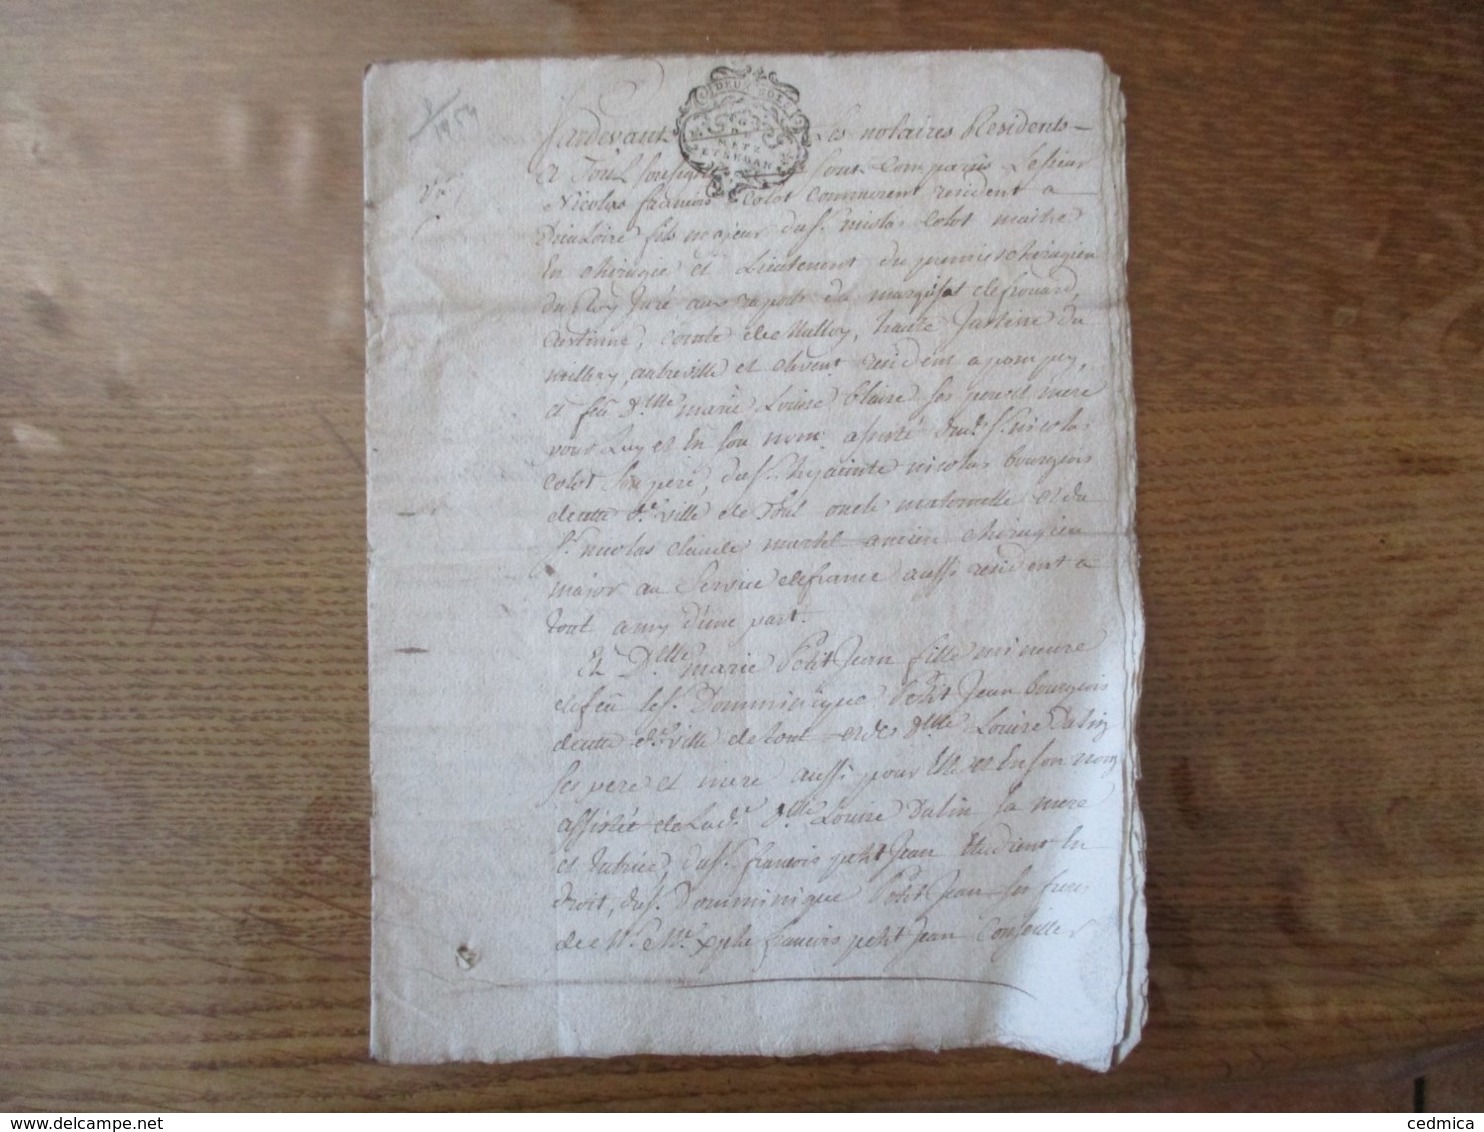 DEUX SOLS
METZ
ET SEDAN
Pardevant Les notaires Residents
a Toul soussign sont Comparus Le sieur
Nicolas francois Colot Commerent resident a
Dieuloire fils majeur du S. nicolas Colot maitre
En chirugie et Lieutenent du premier chirugien
du Roy Juré aux raports du marquisat de frouard,
Custinne, comté de Malloy, haute Justice du
autreville et resident a pompey,
et feu d.lle marie Louise Claire ses pere et mere
pour Luy et En son nom assisté dud. S. nicolas
colot son pere, du S. hyacinte nicolas bourgeois
de cette d. ville de Toul oncle maternelle et du
S. nicolas claude martel ancien chirugien
major au Service de france aussi resident a
toul amy d'une part.
Et D.lle marie Petit Jean fille mineure
de feu le S. Dominicque Petit Jean bourgeois
de cette d. ville de toul et de d.lle Louise Dalin
ses pere et mere aussi pour Elle et En son nom
assistée de Lad. d.lle Louise Dalin sa mere
et tutrice, du S. francois petit Jean Etudient En
droit, du S. Dominique Petit Jean ses freres
de M. francois petit Jean Conseiller
cedmica
www.delcampe.net